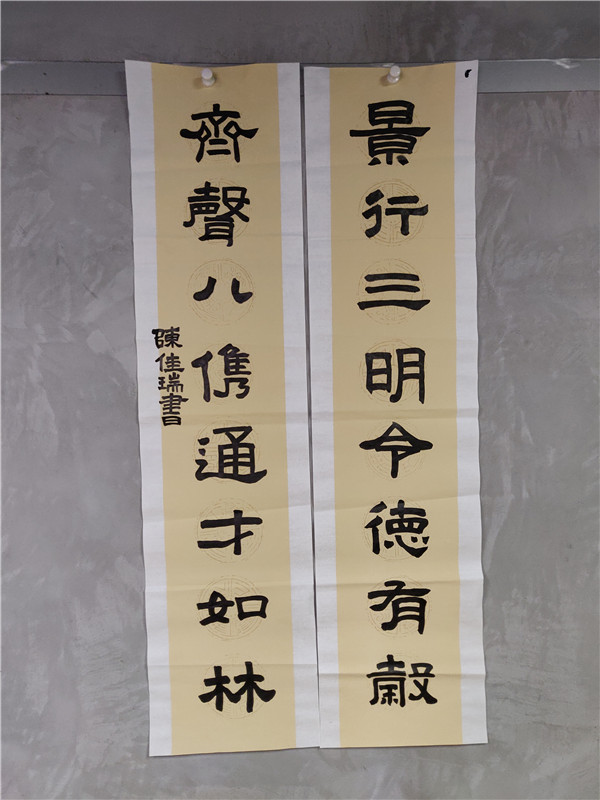 景行三明令德有穀
齊聲八儁通才如林
陳佳瑞書